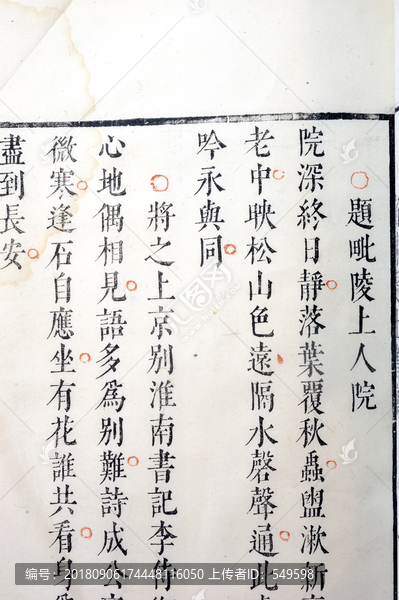 題毗陵上人院
院深終日靜落葉覆秋蟲盥漱新
老中映松山色遠隔水磬聲通此
吟永與同
將之上京別淮南書記李侍
心地偶相見語多爲別難詩成公
微寒逢石自應坐有花誰共看身
盡到長安
编号：20180906174448116050 上传者ID：549598